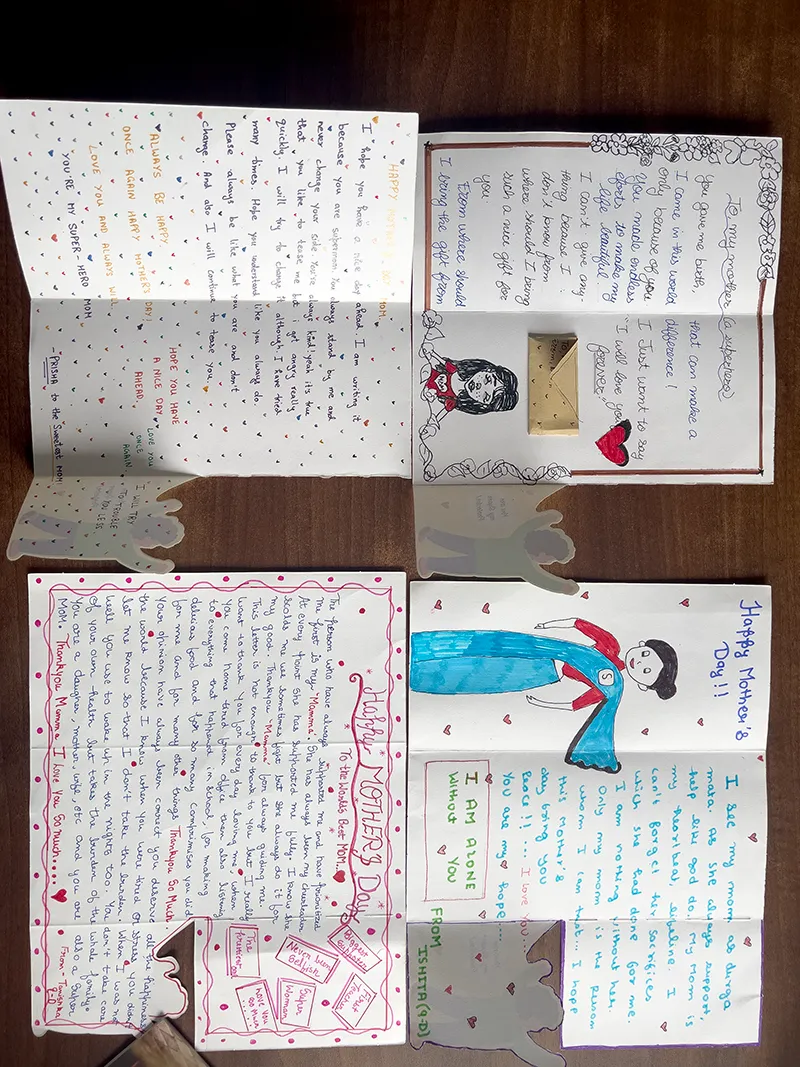 To my mother (a superhero)
You gave me birth,
I came in this world
only because of you
You made endless
efforts to make my
life beautiful
I can't give any
thing because I
don't know from
where should I bring
such a nice gift for
you
From where should
I bring the gift from
that can make a
difference!
I Just want to say
"I will love you
forever."
To
HAPPY MOTHER'S DAY MOM.
I hope you have a nice day ahead. I am writing it
because you are superwoman. You always stand by me and
never change your side. You're always kind! yeah it's true
that you like to tease me but i get angry really
quickly. I will try to change it although I have tried
many times. Hope you understand like you always do.
Please always be like what you are and don't
change. And also I will continue to tease you.
ALWAYS BE HAPPY
ONCE AGAIN HAPPY MOTHER'S DAY!
LOVE YOU AND ALWAYS WILL
YOU'RE MY SUPER-HERO MOM
HOPE YOU HAVE
A NICE DAY
AHEAD.
LOVE YOU
ONCE
AGAIN
I WILL TRY
TO TROUBLE
YOU LESS
-PRISHA to the Sweetest MOM!
Happy Mother's
Day!!
S
I see my mom as durga
mata. As she always support,
help like god do. My Mom is
my heartbeat, lifeline. I
can't forget her sacrifices
which she had done for me.
I am nothing without her.
Only my mom is the Reason
whom I can trust... I hope
this Mother's
day bring you
Peace!! ... I love you...
You are my hope....
I AM ALONE
WITHOUT YOU
FROM
ISHITA (9-D)
Happy MOTHER'S Day
To the World's Best MOM..
The person who have always supported me and have prioritized
me first is my "Mumma". She has always been my cheerleader
At every point she has supported me fully. I know she
scolds me we sometimes fight but she always do it for
my good. Thankyou "Mumma" for always guiding me.
This letter is not enough to thank to you but I really
want to thank you for every day loving me, when
you come home tired from office then also listing
to everything that happened in school for making
delicious food and for so many compromises you did
for me and for many other things Thankyou So Much
Your opinion have always been correct you deserve all the happiness
the world because I know when you were tired or stress you didn't
let me know so that I don't take the burden. When I was not
well you use to wake up in the nights too. You don't take care
of your own health but takes the burden of the whole family.
You are a daughter, mother, wife, etc and you are also a Super
MOM. Thankyou Mumma I love You So much....
From - Tanishka
9-D
Biggest
Supporter
Never been
Selfish
The
Prettiest
Super
Woman
Love you
so Much